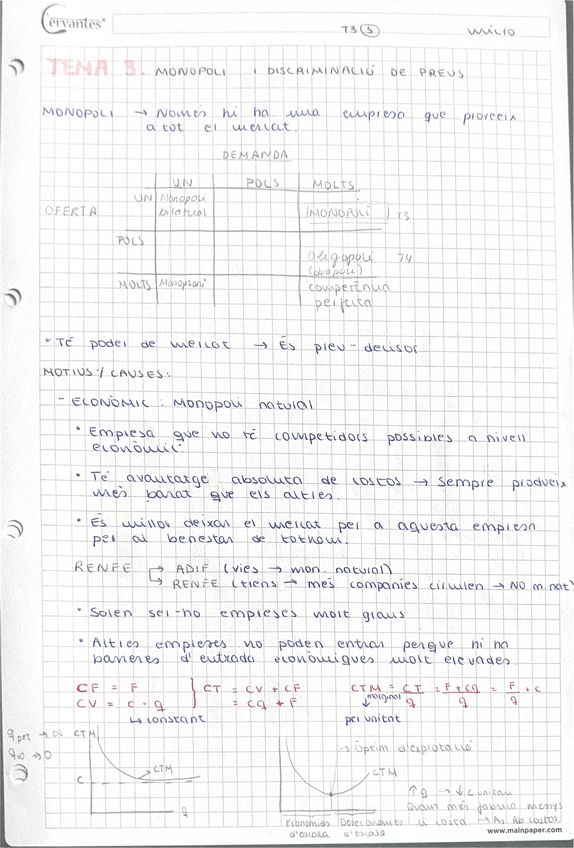 Cervantes®
T3 (5) micro
TEMA 3. MONOPOLI i DISCRIMINACIÓ DE PREUS
MONOPOLI → Només hi ha una empresa que proveeix
a tot el mercat.
DEMANDA
UN POCS MOLTS
OFERTA UN Monopoli bilatural MONOPOLI T3
POCS Oligopoli (duopoli) T4
MOLTS Monopsoni competència perfecta
• Té poder de mercat → És preu-decisor
MOTIUS / CAUSES:
- ECONÒMIC: Monopoli natural
• Empresa que no té competidors possibles a nivell
econòmic.
• Té avantatge absoluta de costos → sempre produeix
més barat que els altres.
• És millor deixar el mercat per a aquesta empresa
per al benestar de tothom.
RENFE → ADIF (vies → mon. natural)
→ RENFE (trens → més companies circulen → NO m.nat)
• Solen ser-ho empreses molt grans
• Altres empreses no poden entrar perque hi ha
barreres d'entrada econòmiques molt elevades.
CF = F } CT = CV + CF CTM = CT/q = F+cq/q = F/q + c
CV = c · q = cq + F ↓ marginal
↳ constant per unitat
→ ∞ CTM
→ 0
Òptim d'explotació
CTM
CTM
c
q
↑ q → ↓ c unitari
Quant més fabrica menys
li costa → Av. Ab costos
Economies d'escala
Deseconomies d'escala
www.mainpaper.com